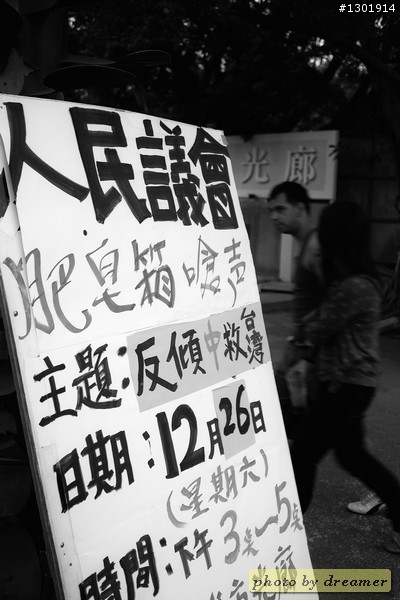 #1301914
人民議會
光廊
肥皂箱嗆声
主題:反傾中救台灣
日期:12月26日
(星期六)
時間:下午3点~5点
光廊
photo by dreamer